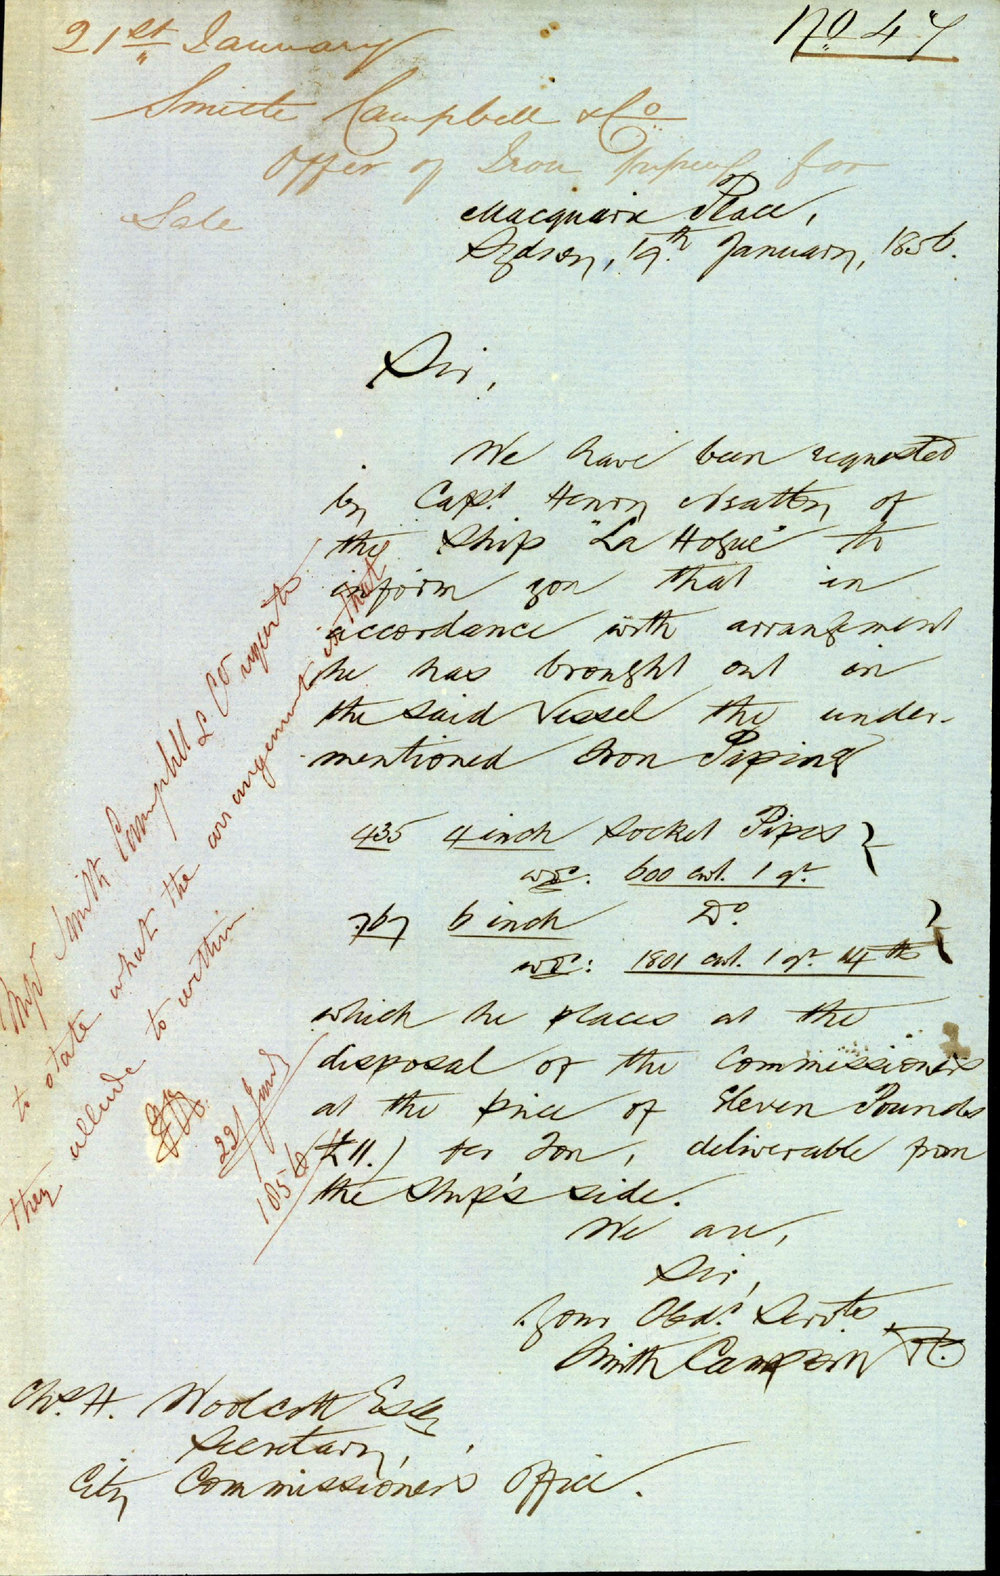 21st January
No 47
Smith Campbell & Co
Offer of Iron Piping for
Sale
Macquarie Place,
Sydney, 19th January, 1856.
Sir,
We have been requested
by Capt Henry Neatby of
the Ship "La Hogue" to
inform you that in
accordance with arrangement
he has brought out in
the said Vessel the under-
mentioned Iron Piping
435 4 inch Socket Pipes }
wg: 600 cwt. 1 qr.
767 6 inch Do }
wg: 1801 cwt. 1 qr. 14 lbs
which he places at the
disposal of the Commissioners
at the price of Eleven Pounds
(£11.) per Ton, deliverable from
the Ship's side.
We are,
Sir,
Your Obdt Servts
Smith Campbell & Co
Chs H. Woolcott Esq
Secretary,
City Commissioners Office.
Smith Campbell & Co
to state what the arrangement is that
they allude to within
22/ Jany
1856